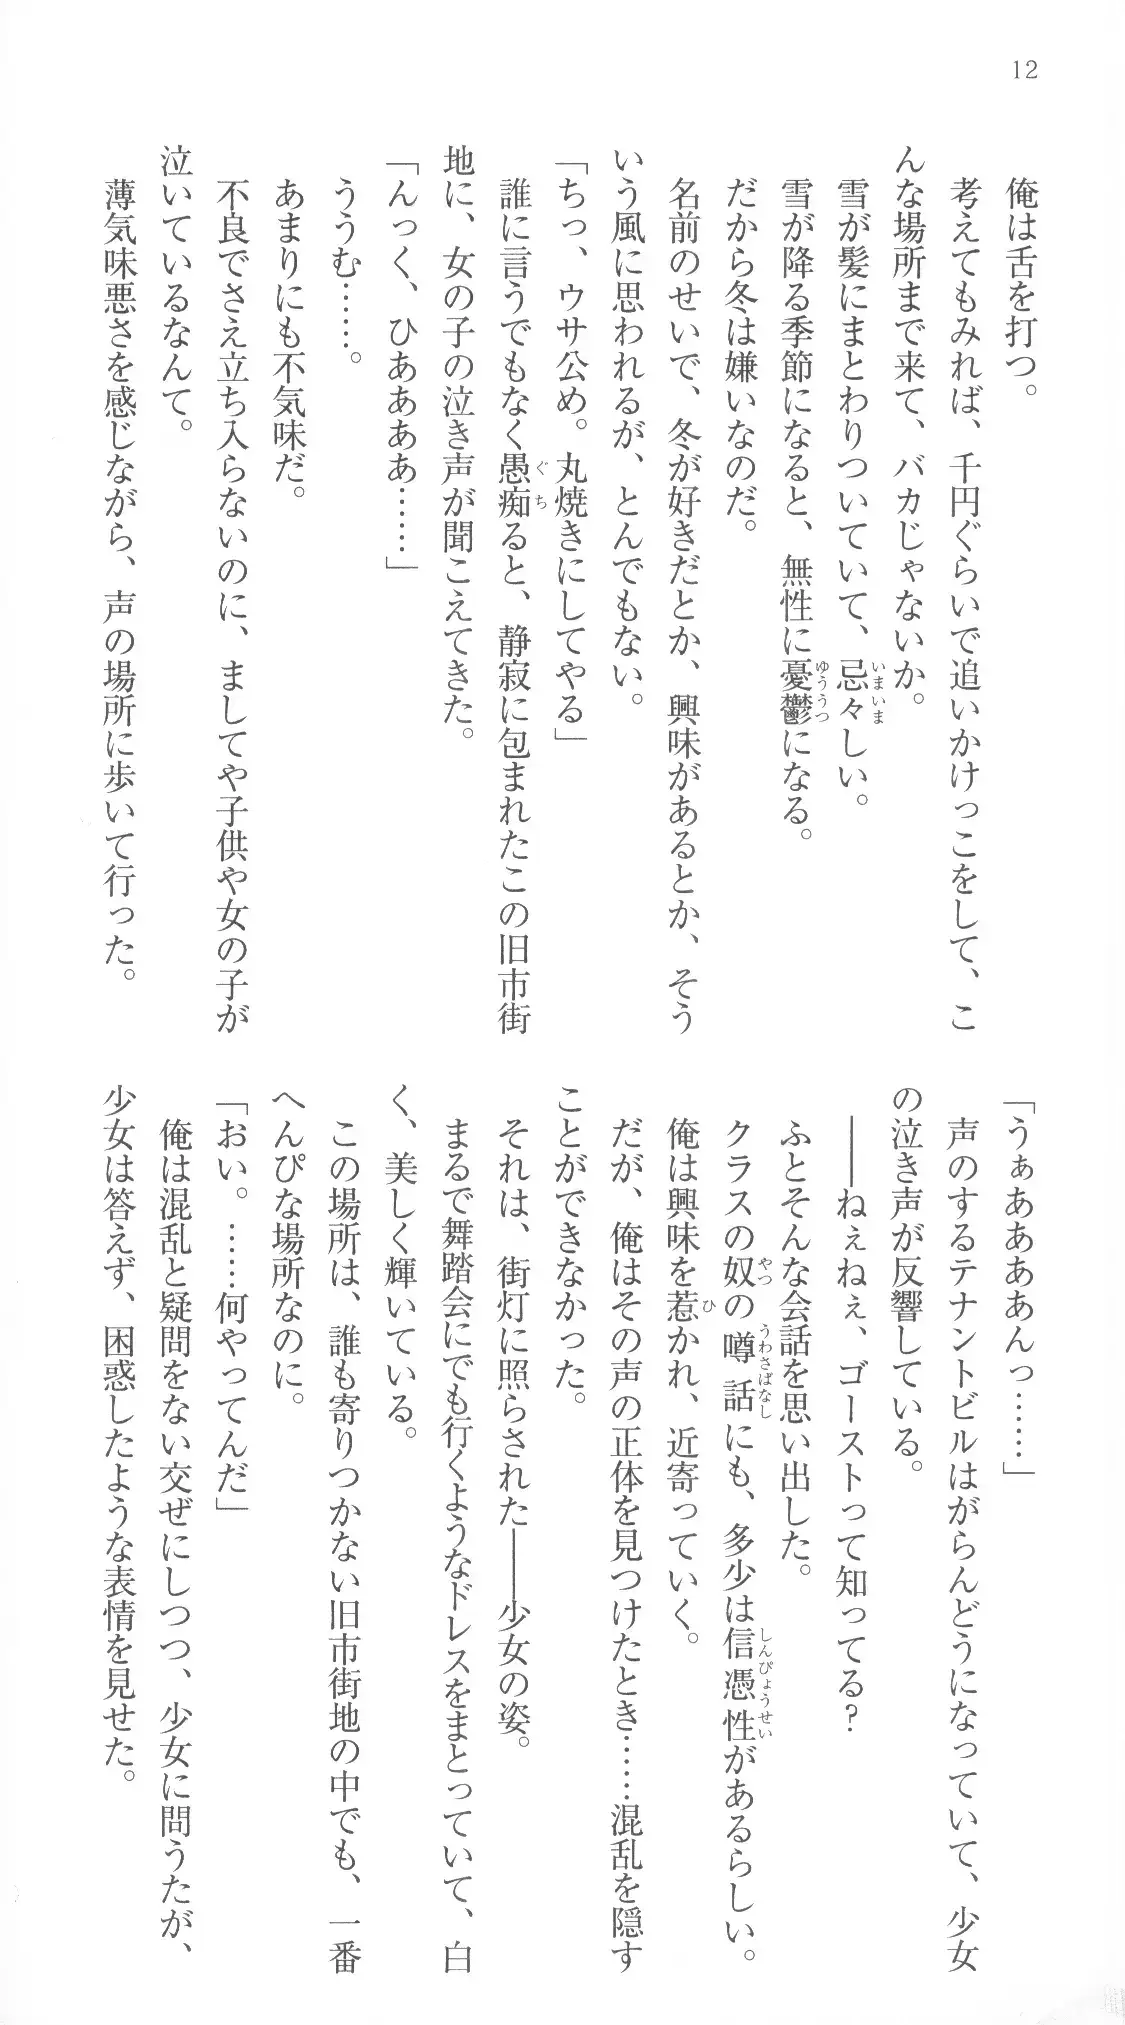 12
俺は舌を打つ。
考えてもみれば、千円ぐらいで追いかけっこをして、こ
んな場所まで来て、バカじゃないか。
雪が髪にまとわりついていて、忌々しい。
雪が降る季節になると、無性に憂鬱になる。
だから冬は嫌いなのだ。
名前のせいで、冬が好きだとか、興味があるとか、そう
いう風に思われるが、とんでもない。
「ちっ、ウサ公め。丸焼きにしてやる」
誰に言うでもなく愚痴ると、静寂に包まれたこの旧市街
地に、女の子の泣き声が聞こえてきた。
「んっく、ひああああ……」
ううむ……。
あまりにも不気味だ。
不良でさえ立ち入らないのに、ましてや子供や女の子が
泣いているなんて。
薄気味悪さを感じながら、声の場所に歩いて行った。
「うぁああああんっ……」
声のするテナントビルはがらんどうになっていて、少女
の泣き声が反響している。
――ねぇねぇ、ゴーストって知ってる？
ふとそんな会話を思い出した。
クラスの奴の噂話にも、多少は信憑性があるらしい。
俺は興味を惹かれ、近寄っていく。
だが、俺はその声の正体を見つけたとき……混乱を隠す
ことができなかった。
それは、街灯に照らされた――少女の姿。
まるで舞踏会にでも行くようなドレスをまとっていて、白
く、美しく輝いている。
この場所は、誰も寄りつかない旧市街地の中でも、一番
へんぴな場所なのに。
「おい。……何やってんだ」
俺は混乱と疑問をない交ぜにしつつ、少女に問うたが、
少女は答えず、困惑したような表情を見せた。